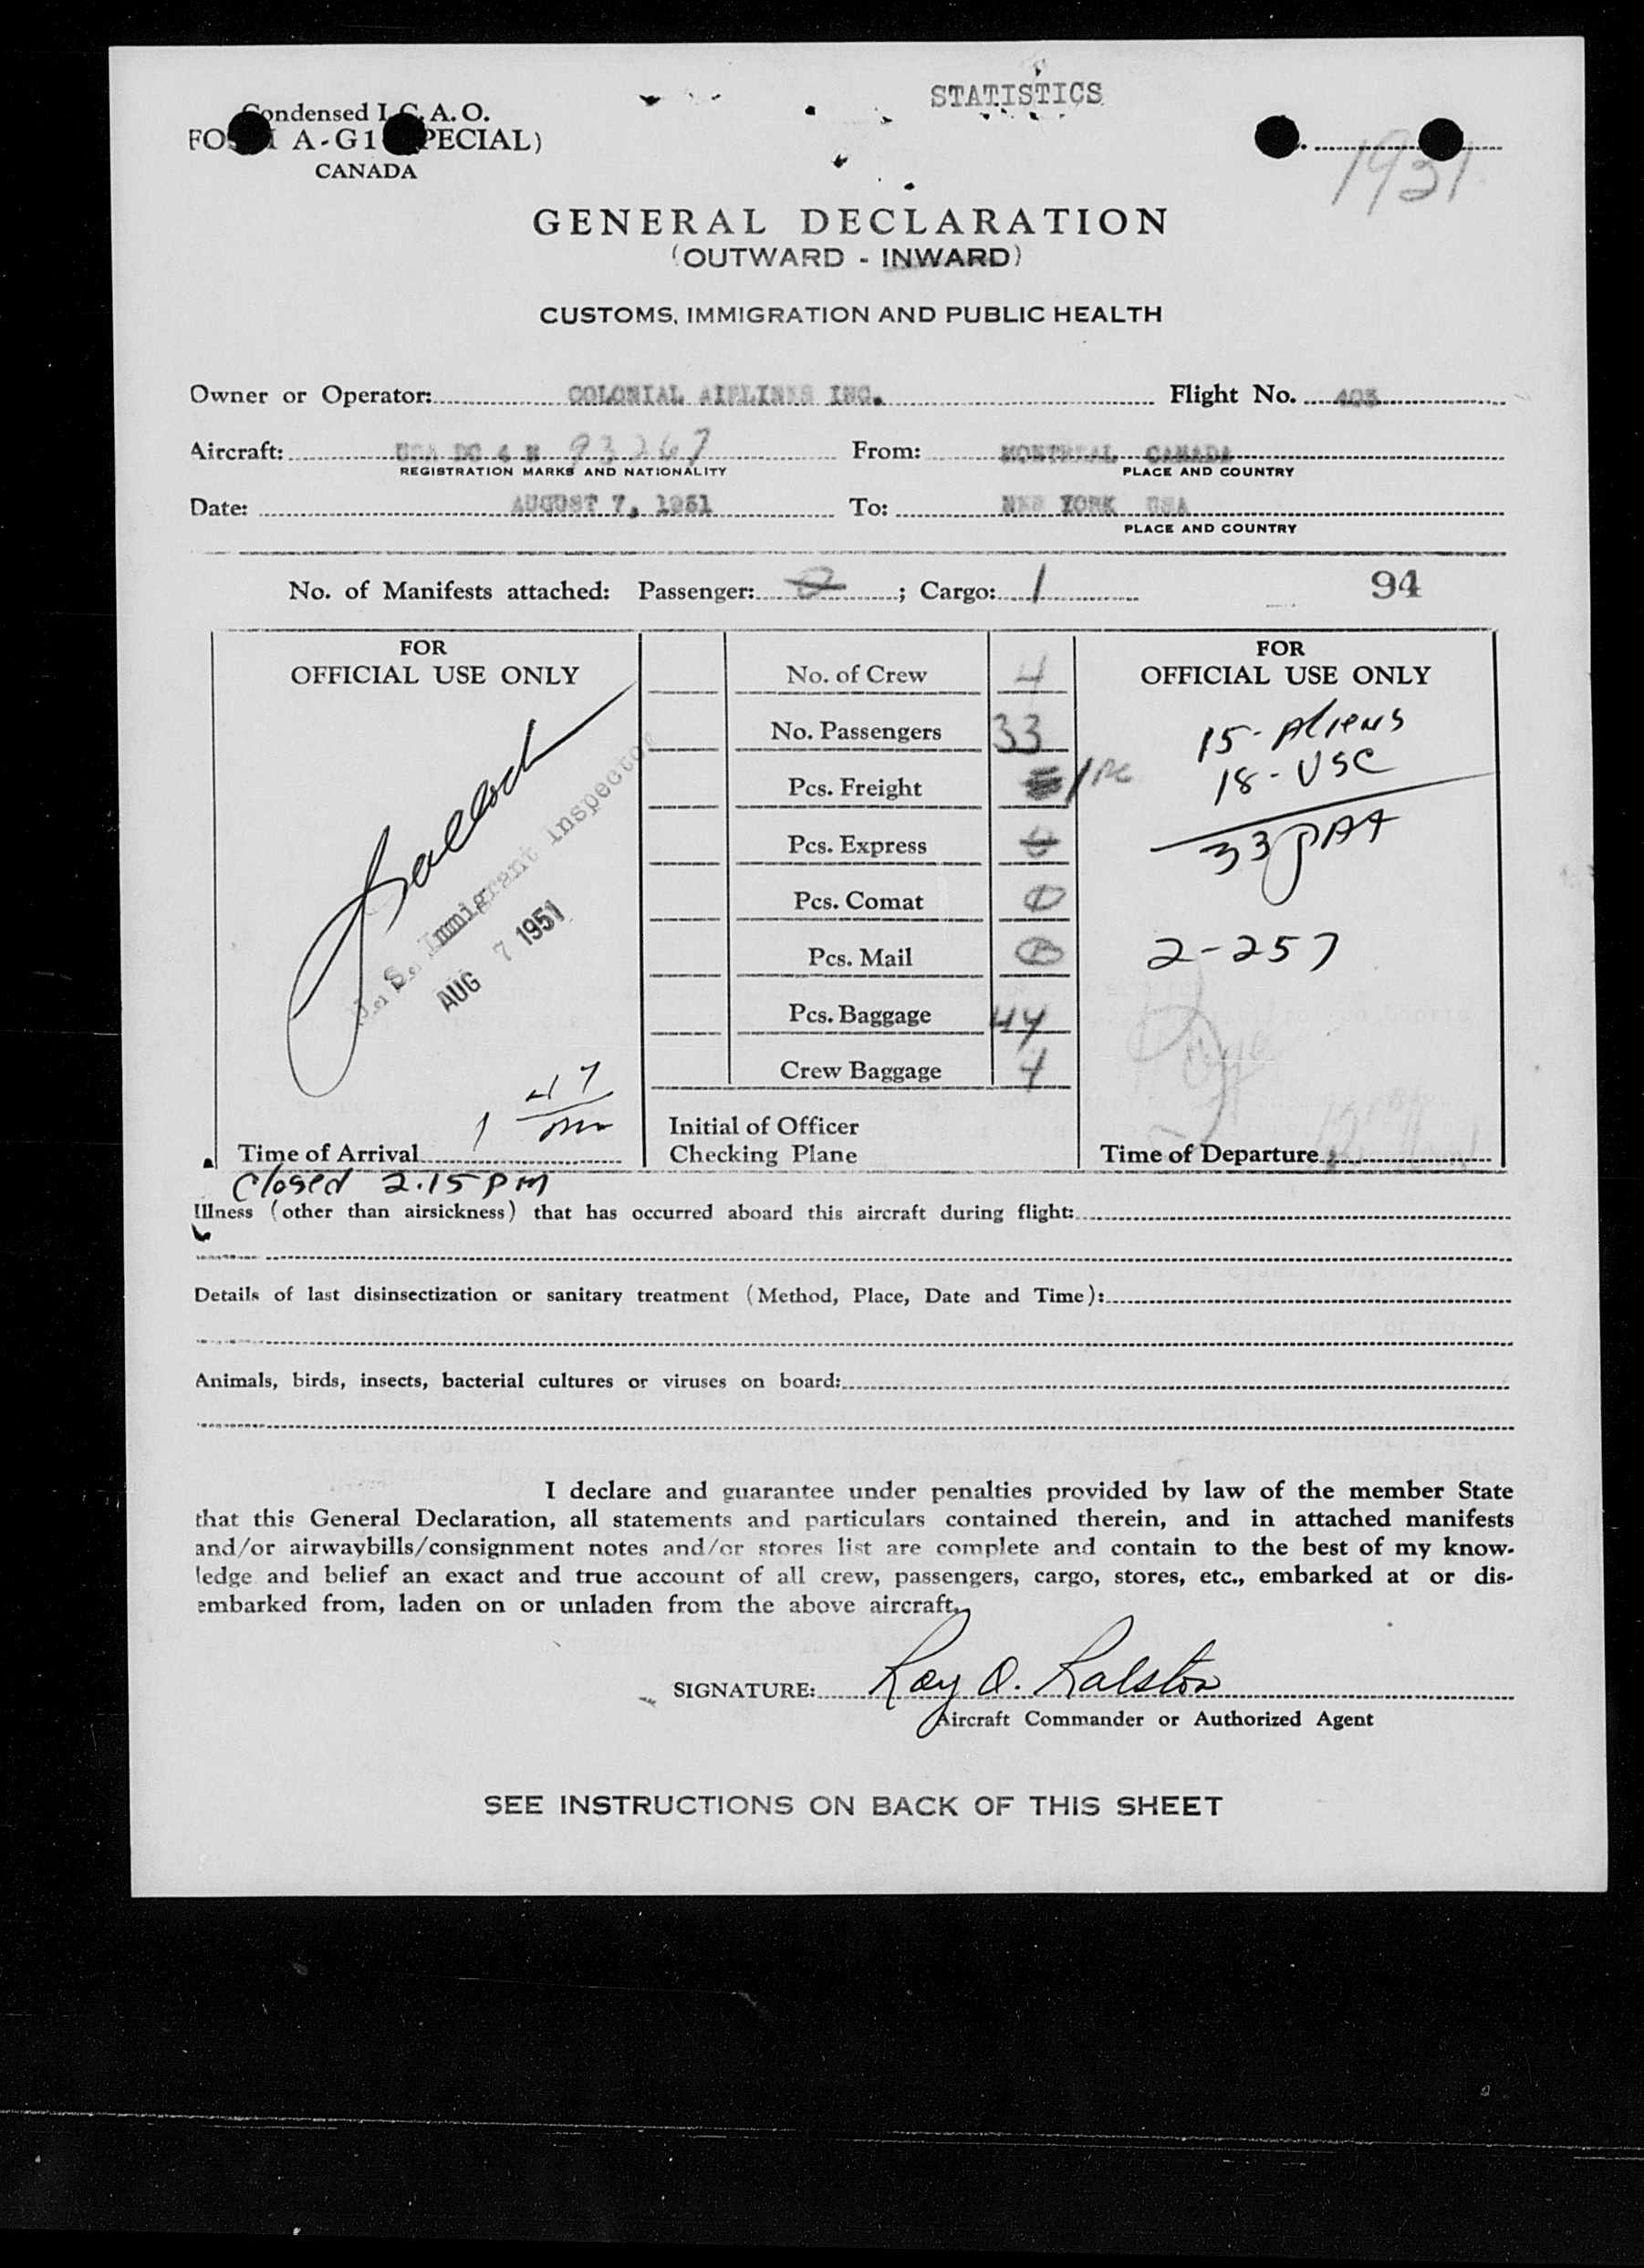 STATISTICS
Condensed I.C.A.O.
FORM A-G1 (SPECIAL)
CANADA
1931
GENERAL DECLARATION
(OUTWARD - INWARD)
CUSTOMS, IMMIGRATION AND PUBLIC HEALTH
Owner or Operator: COLONIAL AIRLINES INC. Flight No. 403
Aircraft: USA DC 4 N 93267 From: MONTREAL CANADA
REGISTRATION MARKS AND NATIONALITY PLACE AND COUNTRY
Date: AUGUST 7, 1951 To: NEW YORK USA
PLACE AND COUNTRY
No. of Manifests attached: Passenger: 0; Cargo: 1 94
FOR
OFFICIAL USE ONLY
U. S. Immigrant Inspector
AUG 7 1951
1 47
pm
Time of Arrival
closed 2.15 pm
No. of Crew 4
No. Passengers 33
Pcs. Freight 1 pc
Pcs. Express 0
Pcs. Comat
Pcs. Mail
Pcs. Baggage 44
Crew Baggage 4
Initial of Officer
Checking Plane
FOR
OFFICIAL USE ONLY
15 - Aliens
18 - USC
33
2-257
Time of Departure
Illness (other than airsickness) that has occurred aboard this aircraft during flight:
Details of last disinsectization or sanitary treatment (Method, Place, Date and Time):
Animals, birds, insects, bacterial cultures or viruses on board:
I declare and guarantee under penalties provided by law of the member State
that this General Declaration, all statements and particulars contained therein, and in attached manifests
and/or airwaybills/consignment notes and/or stores list are complete and contain to the best of my know-
ledge and belief an exact and true account of all crew, passengers, cargo, stores, etc., embarked at or dis-
embarked from, laden on or unladen from the above aircraft.
SIGNATURE: Roy O. Ralston
Aircraft Commander or Authorized Agent
SEE INSTRUCTIONS ON BACK OF THIS SHEET